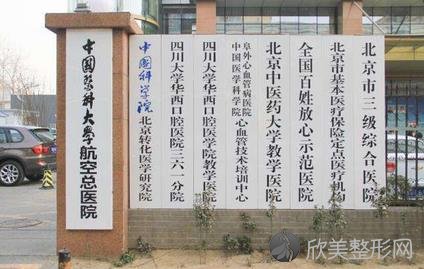 中国医科大学航空总医院
中国科学院北京转化医学研究院
四川大学华西口腔医院三六一分院
四川大学华西口腔医院教学医院
阜外心血管病医院
中国医学科学院心血管技术培训中心
北京中医药大学教学医院
全国百姓放心示范医院
北京市基本医疗保险定点医疗机构
北京市三级综合医院
欣美整形网